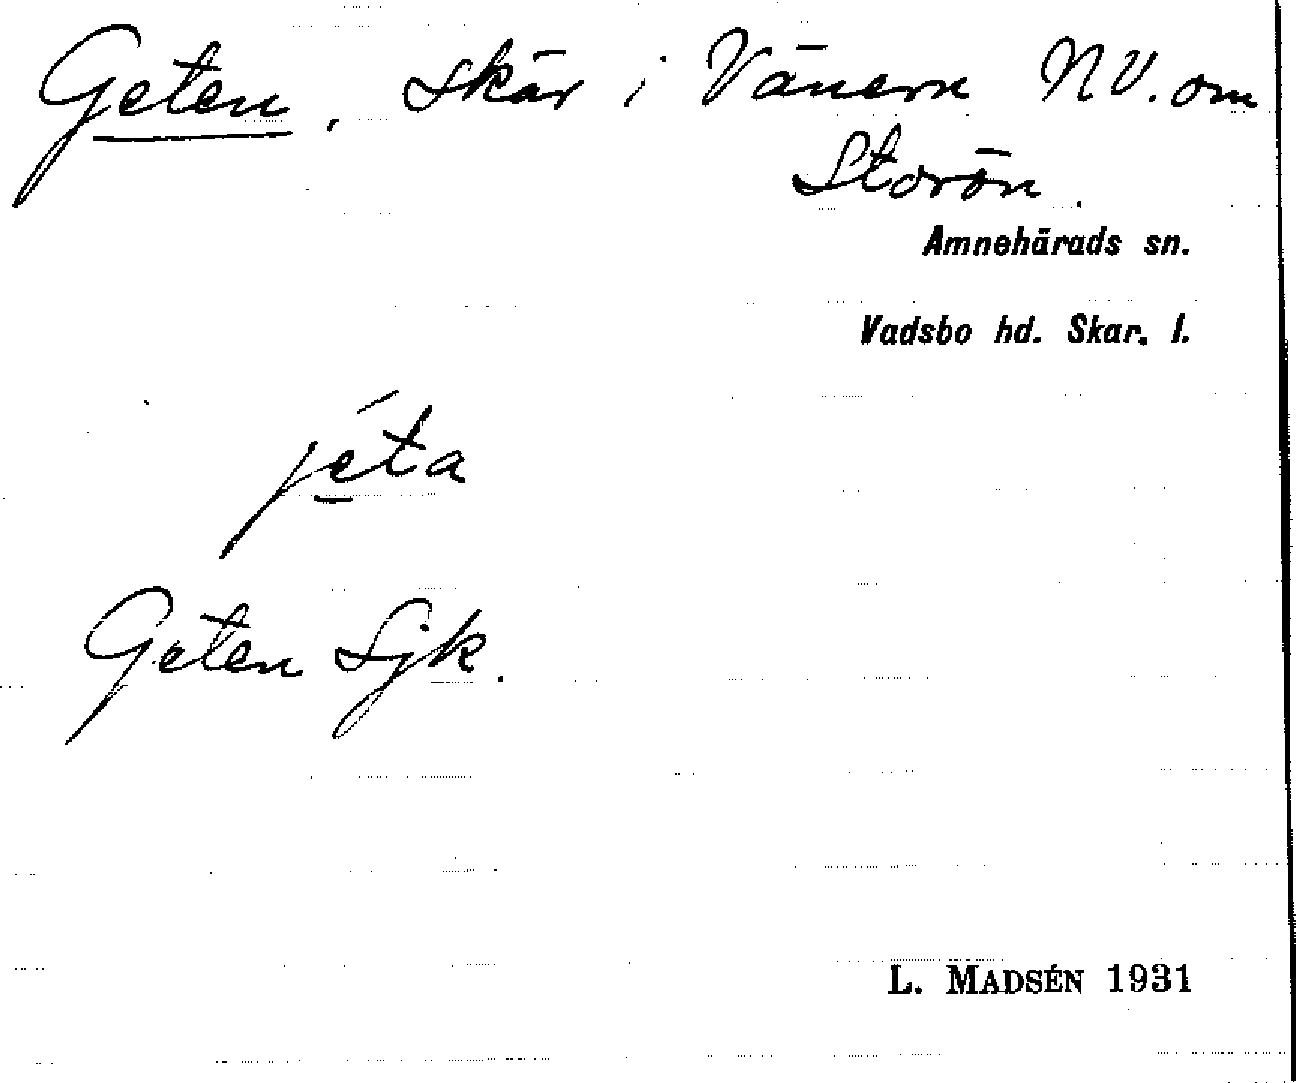 Geten, skär i Vänern NV. om
Storön.
Amnehärads sn.
Vadsbo hd. Skar. l.
jéta
Geten Sjk.
L. MADSÉN 1931